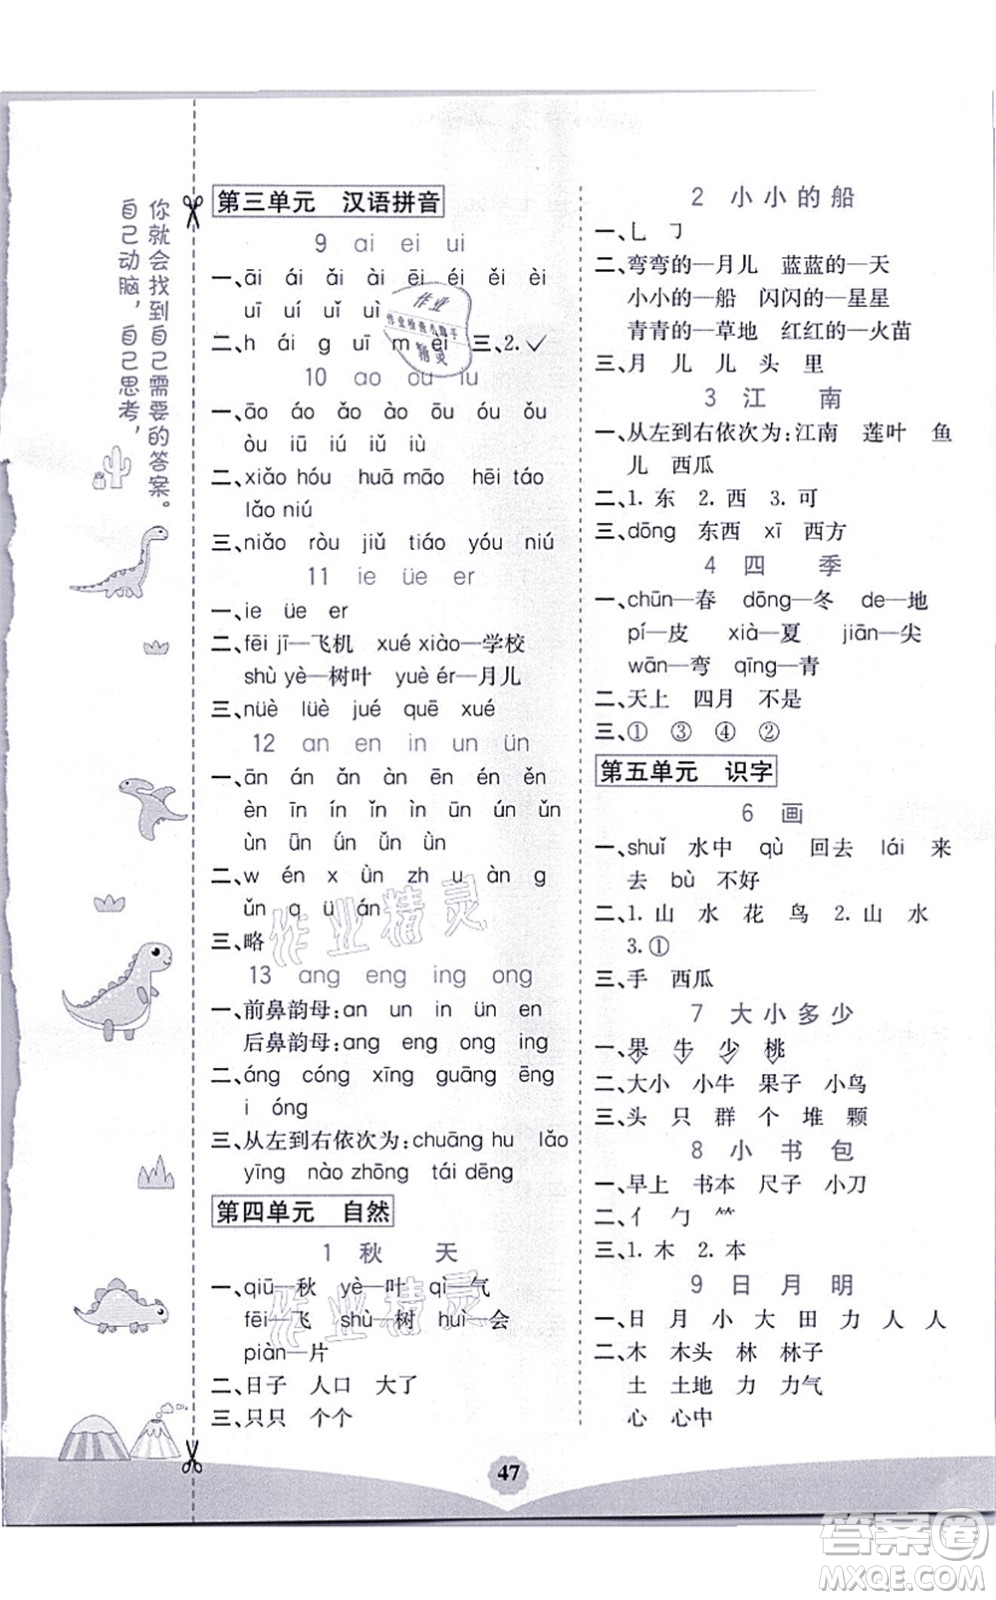 你就会找到自己需要的答案。
自己动脑,自己思考,
第三单元 汉语拼音
9 ai ei ui
一、āi ái ǎi ài ēi éi ěi èi
uī uí uǐ uì
二、h ái g uī m èi 三、2.✓
10 ao ou iu
一、āo áo ǎo ào ōu óu ǒu
òu iū iú iǔ iù
二、xiǎo hóu huā māo hēi táo
lǎo niú
三、niǎo ròu jiǔ tiáo yóu niú
11 ie üe er
一、ie üe er
二、fēi jī—飞机 xué xiào—学校
shù yè—树叶 yuè ér—月儿
三、nüè lüè jué quē xué
12 an en in un ün
一、ān án ǎn àn ēn én ěn
èn īn ín ǐn ìn ūn ún ǔn
ùn ǖn ǘn ǚn ǜn
二、w én x ùn zh u àn g
ǔn q ü án
三、略
13 ang eng ing ong
一、前鼻韵母:an un in ün en
后鼻韵母:ang eng ong ing
二、áng cóng xīng guāng ēng
i óng
三、从左到右依次为:chuāng hu lǎo
yīng nào zhōng tái dēng
第四单元 自然
1 秋 天
一、qiū—秋 yè—叶 qì—气
fēi—飞 shù—树 huì—会
piàn—片
二、日子 人口 大了
三、只只 个个
2 小小的船
一、乚 ㇆
二、弯弯的—月儿 蓝蓝的—天
小小的—船 闪闪的—星星
青青的—草地 红红的—火苗
三、月 儿 儿 头 里
3 江 南
一、从左到右依次为:江南 莲叶 鱼
儿 西瓜
二、1. 东 2. 西 3. 可
三、dōng 东西 xī 西方
4 四 季
一、chūn—春 dōng—冬 de—地
pí—皮 xià—夏 jiān—尖
wān—弯 qīng—青
二、天上 四月 不是
三、① ③ ④ ②
第五单元 识字
6 画
一、shuǐ 水中 qù 回去 lái 来
去 bù 不好
二、1. 山 水 花 鸟 2. 山 水
3.①
三、手 西瓜
7 大小多少
一、果 牛 少 桃
二、大小 小牛 果子 小鸟
三、头 只 群 个 堆 颗
8 小 书 包
一、早上 书本 尺子 小刀
二、亻 勹 ⺮
三、1. 木 2. 本
9 日 月 明
一、日 月 小 大 田 力 人 人
二、木 木头 林 林子
土 土地 力 力气
心 心中
47
作业精灵
作业精灵
答案圈
MXQE.COM